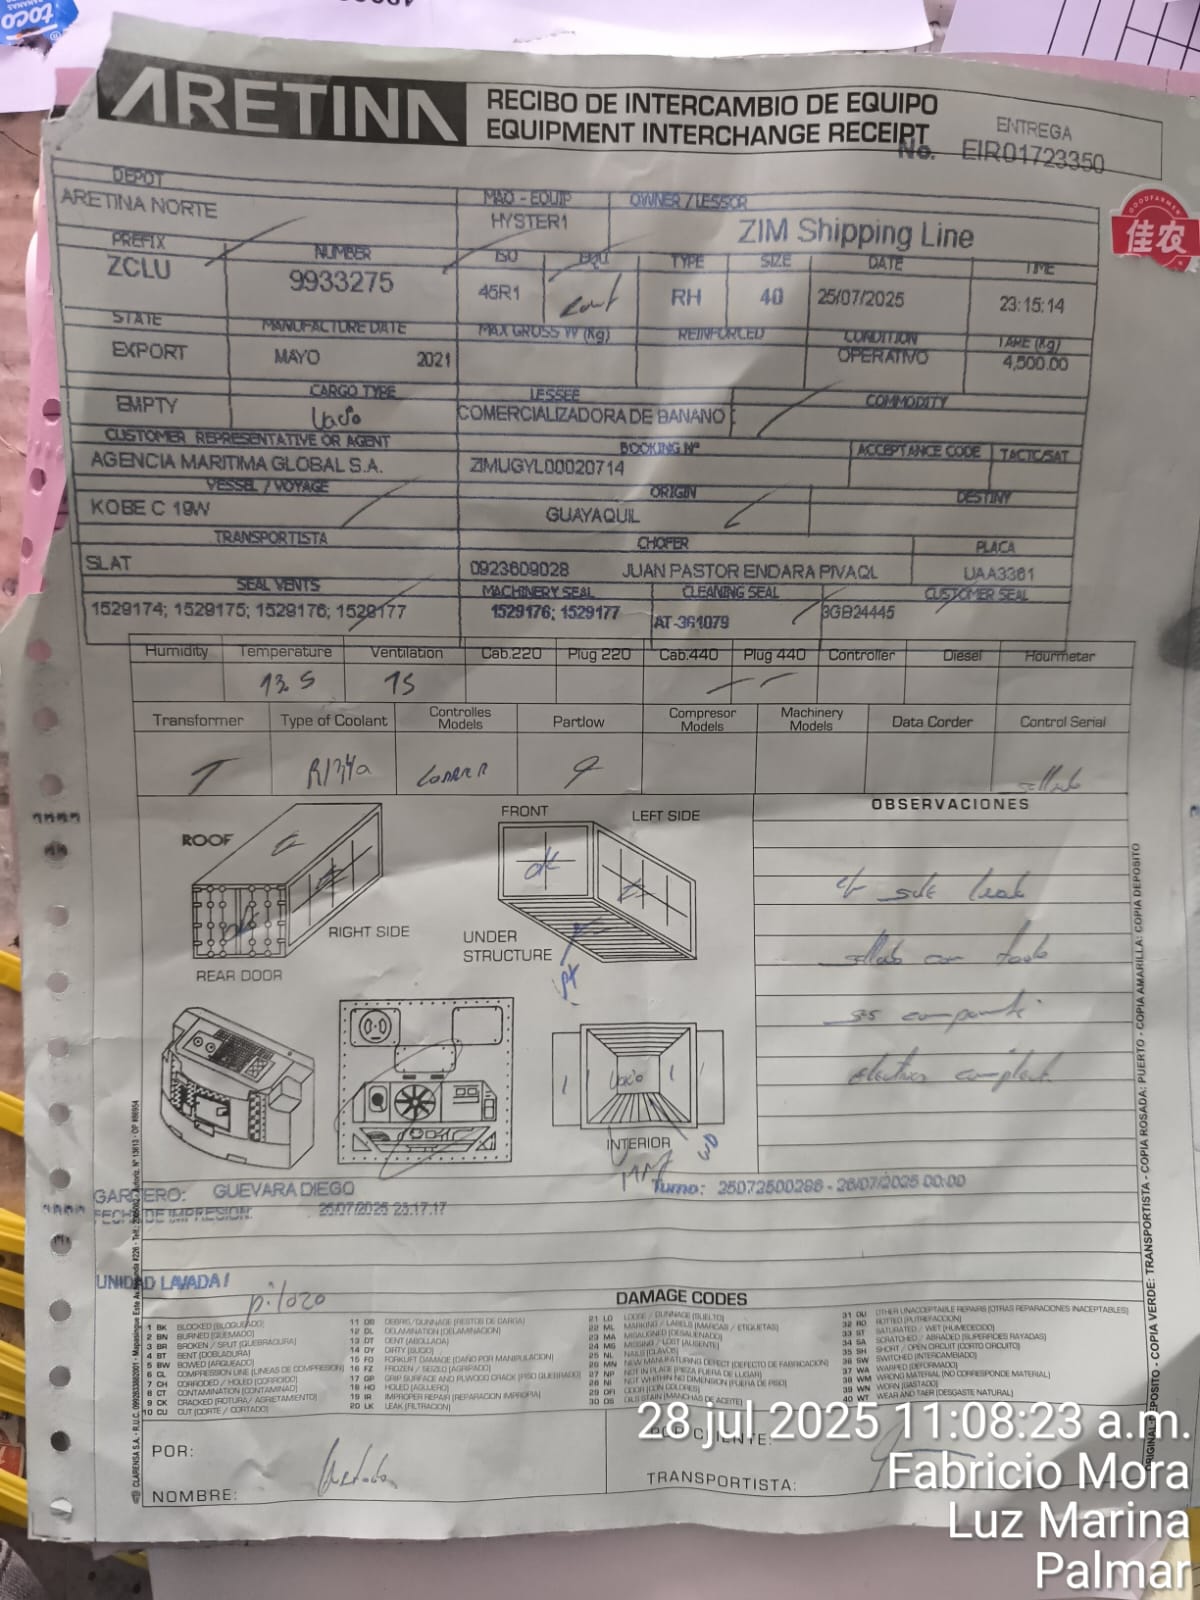 toco
ARETINA
RECIBO DE INTERCAMBIO DE EQUIPO
EQUIPMENT INTERCHANGE RECEIPT
ENTREGA
No. EIR01723350
佳农
DEPOT MAQ - EQUIP OWNER / LESSOR
ARETINA NORTE HYSTER1 ZIM Shipping Line
PREFIX NUMBER ISO EQU TYPE SIZE DATE TIME
ZCLU 9933275 45R1 RH 40 25/07/2025 23:15:14
STATE MANUFACTURE DATE MAX GROSS W (Kg) REINFORCED CONDITION TARE (Kg)
EXPORT MAYO 2021 OPERATIVO 4,500.00
CARGO TYPE LESSEE COMMODITY
EMPTY Vacio COMERCIALIZADORA DE BANANO
CUSTOMER REPRESENTATIVE OR AGENT BOOKING Nº ACCEPTANCE CODE TACTC/SAT
AGENCIA MARITIMA GLOBAL S.A. ZIMUGYL00020714
VESSEL / VOYAGE ORIGIN DESTINY
KOBE C 19W GUAYAQUIL
TRANSPORTISTA CHOFER PLACA
SLAT 0923609028 JUAN PASTOR ENDARA PIVAQL UAA3361
SEAL VENTS MACHINERY SEAL CLEANING SEAL CUSTOMER SEAL
1529174; 1529175; 1529176; 1529177 1529176; 1529177 AT-361079 3GB24445
Humidity Temperature Ventilation Cab.220 Plug 220 Cab.440 Plug 440 Controller Diesel Hourmeter
13.5 15
Transformer Type of Coolant Controlles Models Partlow Compresor Models Machinery Models Data Corder Control Serial
R134a sellado
OBSERVACIONES
ROOF
FRONT
LEFT SIDE
RIGHT SIDE
REAR DOOR
UNDER
STRUCTURE
ok
sellado con todo
sus
Vacio
INTERIOR
GARCERO: GUEVARA DIEGO
Turno: 25072500286 - 26/07/2025 00:00
FECHA DE IMPRESION: 25/07/2025 23:17:17
UNIDAD LAVADA /
DAMAGE CODES
1 BK BLOCKED (BLOQUEADO)
2 BN BURNED (QUEMADO)
3 BR BROKEN / SPLIT (QUEBRADURA)
4 BT BENT (DOBLADURA)
5 BW BOWED (ARQUEADO)
6 CL COMPRESSION LINE (LINEAS DE COMPRESION)
7 CH CORRODED / HOLED (CORROIDO)
8 CT CONTAMINATION (CONTAMINAD)
9 CK CRACKED (ROTURA/ AGRIETAMIENTO)
10 CU CUT (CORTE / CORTADO)
11 DB DEBRIS/DUNNAGE (RESTOS DE CARGA)
12 DL DELAMINATION (DELAMINACION)
13 DT DENT (ABOLLADA)
14 DY DIRTY (SUCIO)
15 FO FORKLIFT DAMAGE (DAÑO POR MANIPULACION)
16 FZ FROZEN / SEIZED (AGRIPADO)
17 GP GRIP SURFACE AND PLYWOOD CRACK (PISO QUEBRADO)
18 HO HOLED (AGUJERO)
19 IR IMPROPER REPAIR (REPARACION IMPROPIA)
20 LK LEAK (FILTRACION)
21 LO LOOSE / DUNNAGE (SUELTO)
22 ML MARKING / LABELS (MARCAS / ETIQUETAS)
23 MA MISALIGNED (DESALINEADO)
24 MG MISSING / LOST (AUSENTE)
25 NL NAILS (CLAVOS)
26 MN NEW MANUFACTURING DEFECT (DEFECTO DE FABRICACION)
27 NP NOT IN PLACE (PIEZA FUERA DE LUGAR)
28 NI NOT WHITHIN NO DIMENSION (FUERA DE PISO)
29 OR ODOR (CON OLORES)
30 OS OIL STAIN (MANCHAS DE ACEITE)
31 OU OTHER UNACCEPTABLE REPAIRS (OTRAS REPARACIONES INACEPTABLES)
32 RO ROTTED (PUTREFACCION)
33 ST SATURATED / WET (HUMEDECIDO)
34 SA SCRATCHED / ABRADED (SUPERFICIES RAYADAS)
35 SH SHORT / OPEN CIRCUIT (CORTO CIRCUITO)
36 SW SWITCHED (INTERCAMBIADO)
37 WA WARPED (DEFORMADO)
38 WM WRONG MATERIAL (NO CORRESPONDE MATERIAL)
39 WN WORN (GASTADO)
40 WT WEAR AND TAER (DESGASTE NATURAL)
POR:
NOMBRE:
POR CLIENTE:
TRANSPORTISTA:
ORIGINAL: DEPOSITO - COPIA VERDE: TRANSPORTISTA - COPIA ROSADA: PUERTO - COPIA AMARILLA: COPIA DEPOSITO
28 jul 2025 11:08:23 a.m.
Fabricio Mora
Luz Marina
Palmar